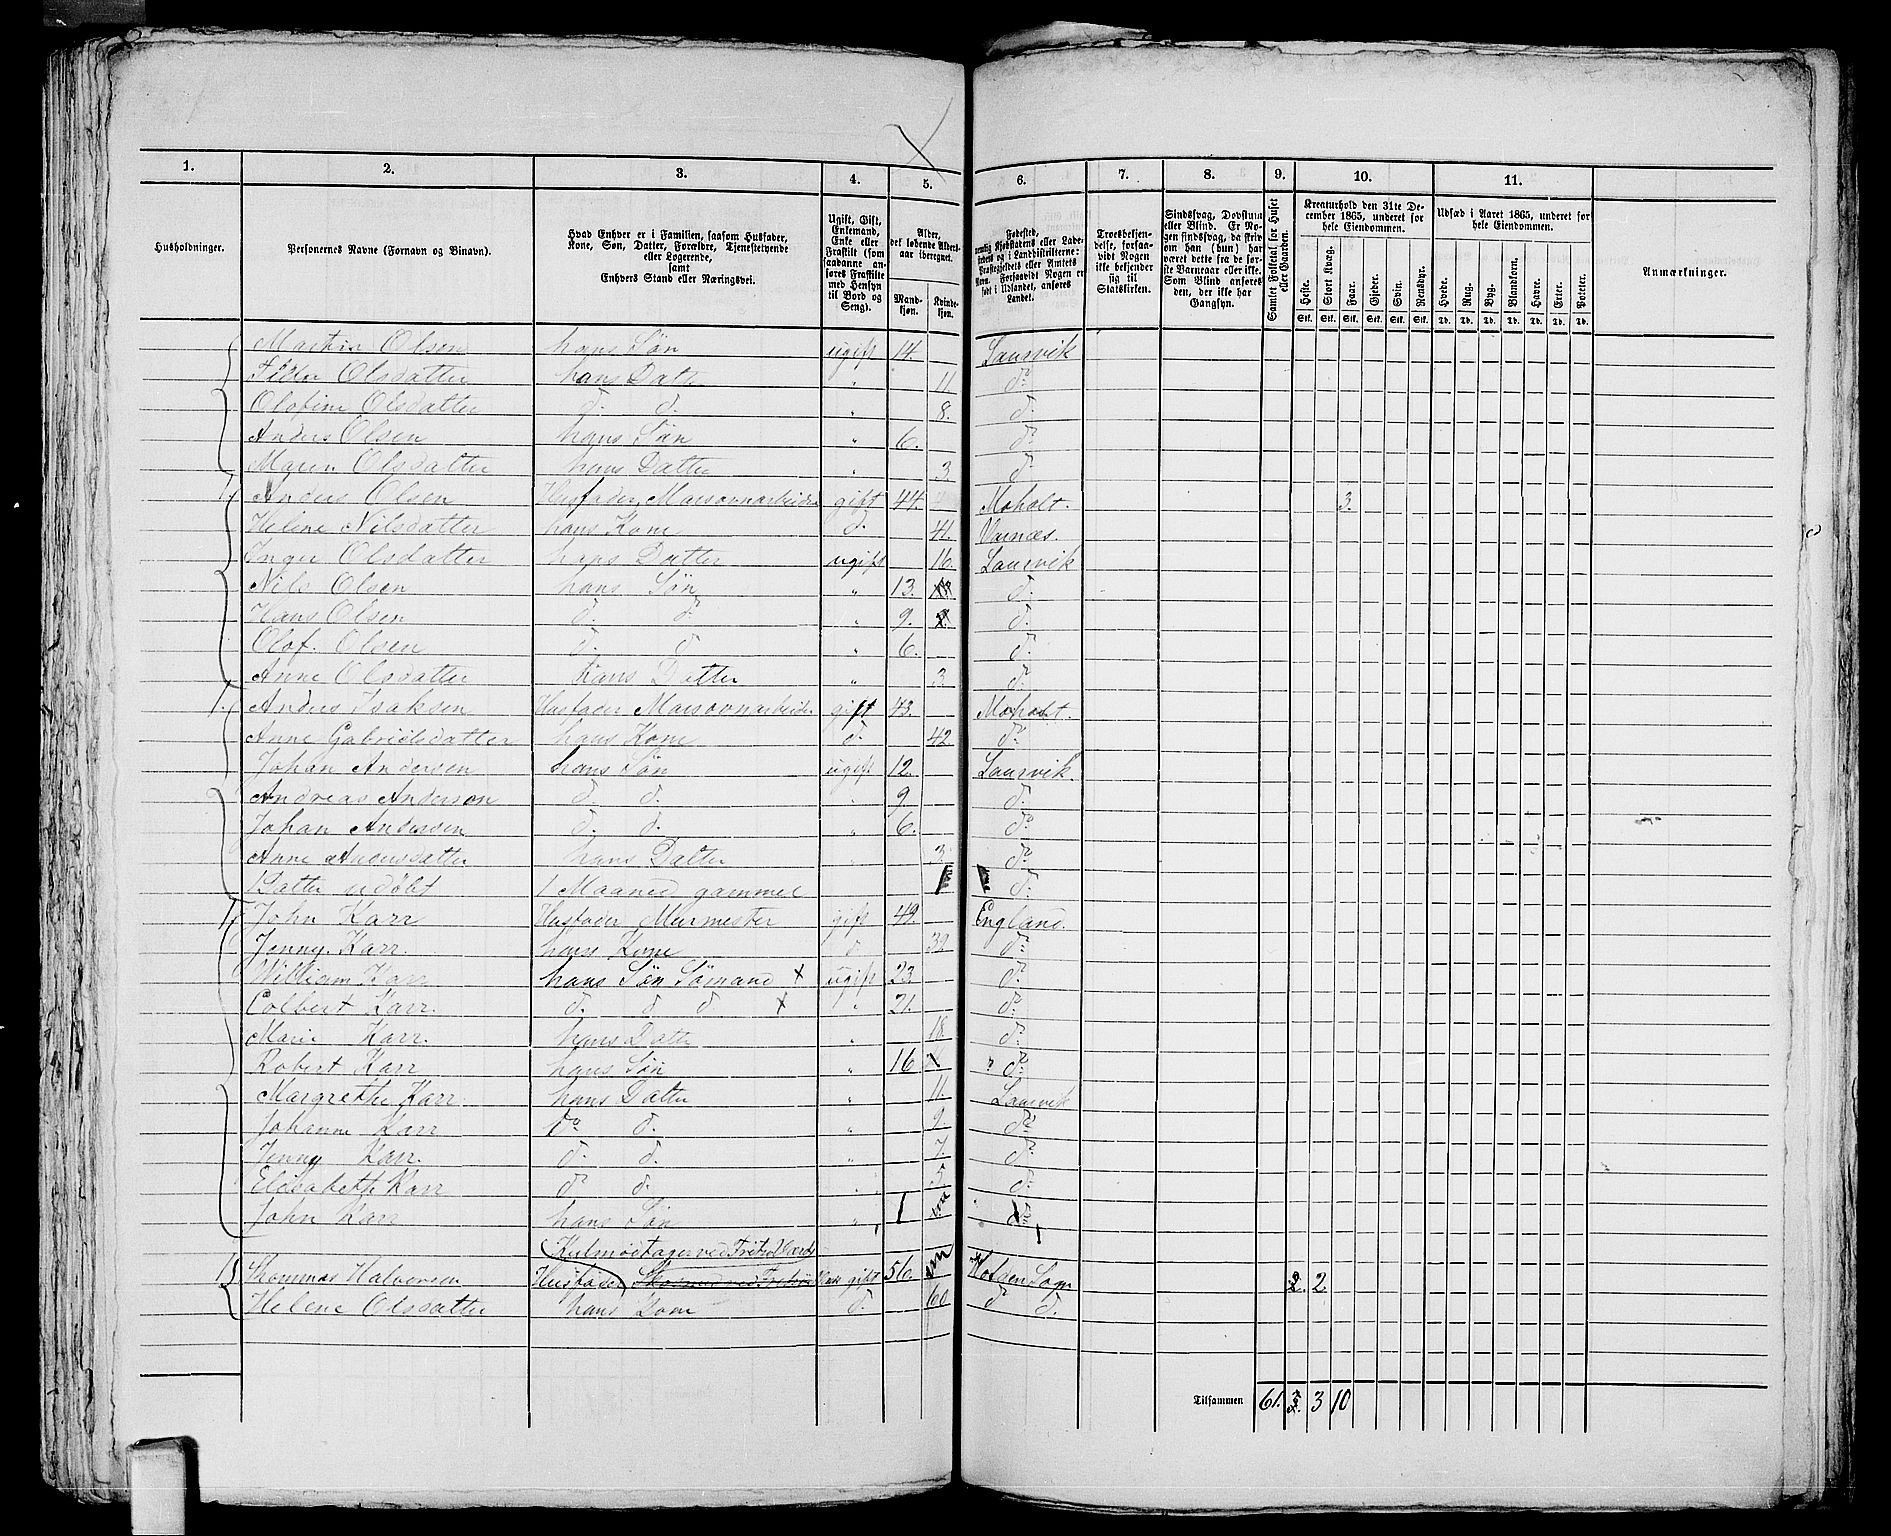 1. 2. 3. 4. 5. 6. 7. 8. 9. 10. 11.
Husholdninger.
Personernes Navne (Fornavn og Binavn).
Hvad Enhver er i Familien, saasom Husfader, Kone, Søn, Datter, Forældre, Tjenestetyende eller Logerende, samt Enhvers Stand eller Næringsvei.
Ugift, Gift, Enkemand, Enke eller Fraskilt (som saadanne anføres Fraskilte med Hensyn til Bord og Seng).
Alder, det løbende Alders-aar iberegnet.
Mand-kjøn. Kvinde-kjøn.
Fødested,
Troesbekjendelse, forsaavidt Nogen ikke bekjender sig til Statskirken.
Sindssvag, Døvstum eller Blind. Er Nogen sindssvag, da skriv om han (hun) har været dette fra de første Barneaar eller ikke. Som Blind anføres den, der ikke har Gangsyn.
Samlet Folketal for Huset eller Gaarden.
Kreaturhold den 31te December 1865, underet for hele Eiendommen.
Heste. Stort Kvæg. Faar. Gjeder. Svin. Rensdyr.
Stk. Stk. Stk. Stk. Stk. Stk.
Udsæd i Aaret 1865, underet for hele Eiendommen.
Hvede. Rug. Byg. Blandkorn. Havre. Erter. Poteter.
Td. Td. Td. Td. Td. Td. Td.
Anmærkninger.
Martin Olsen hans Søn ugift 14. Laurvik
Olsdatter hans Datt " 11 do
Olofine Olsdatter d. d. " 8. d.
Anders Olsen hans Søn " 6. do
Maren Olsdatter hans Datter " 3. d
1. Anders Olsen Husfader Masovnarbeider gift 44. Moholt. 3.
Helene Nilsdatter hans Kone d. 41. Varnæs.
Inger Olsdatter hans Datter ugift 16. Laurvik
Nils Olsen hans Søn " 13. d.
Hans Olsen d. do " 9. d.
Olof. Olsen d. d " 6. d.
Anne Olsdatter hans Datter " 3. d.
1. Anders Isaksen Husfader Masovnarbeider gift 43. Moholt.
Anne Gabrielsdatter hans Kone d. 42 do
Johan Andersen hans Søn ugift 12. Laurvik
Andreas Anderson d. d. " 9. d.
Johan Andersen d. d. " 6. do
Anne Andersdatter hans Datter " 3. do
Datter udøbt 1 Maaned gammel d.
1. John Karr Husfader Murmester gift 49. England.
Jenny. Karr. hans Kone d 39 do
William Karr hans Søn Sømand x ugift 23 d.
Colbert Karr. d. d d x " 21. d.
Marie Karr. hans Datte " 18. d.
Robert Karr hans Søn " 16 " do
Margrethe Karr hans Datter " 11. Laurvik
Johanne Karr do d. " 9. do
Jenny Karr. d. d. " 7. do
Elisabeth Karr do d. " 5. d.
John Karr hans Søn " 1 do
Kulmodtager ved Fritzø Værk
1 Thommas Halvorsen Husfader gift 56. Hofgen Sogn 2. 2.
Helene Olsdatter hans Kone d. 60 d d.
Tilsammen 61. 3 10